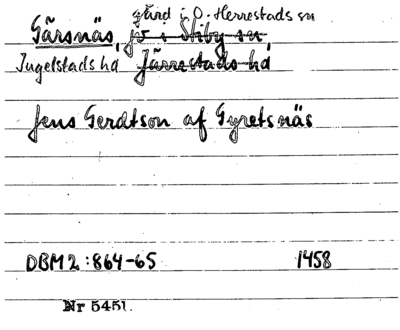 gård i Ö. Herrestads sn
Gärsnäs, jo i Stiby sn
Ingelstads hd Järrestads hd
Jens Gerdtson af Gyretsnäs
DBM2:864-65 1458
Nr 5451.